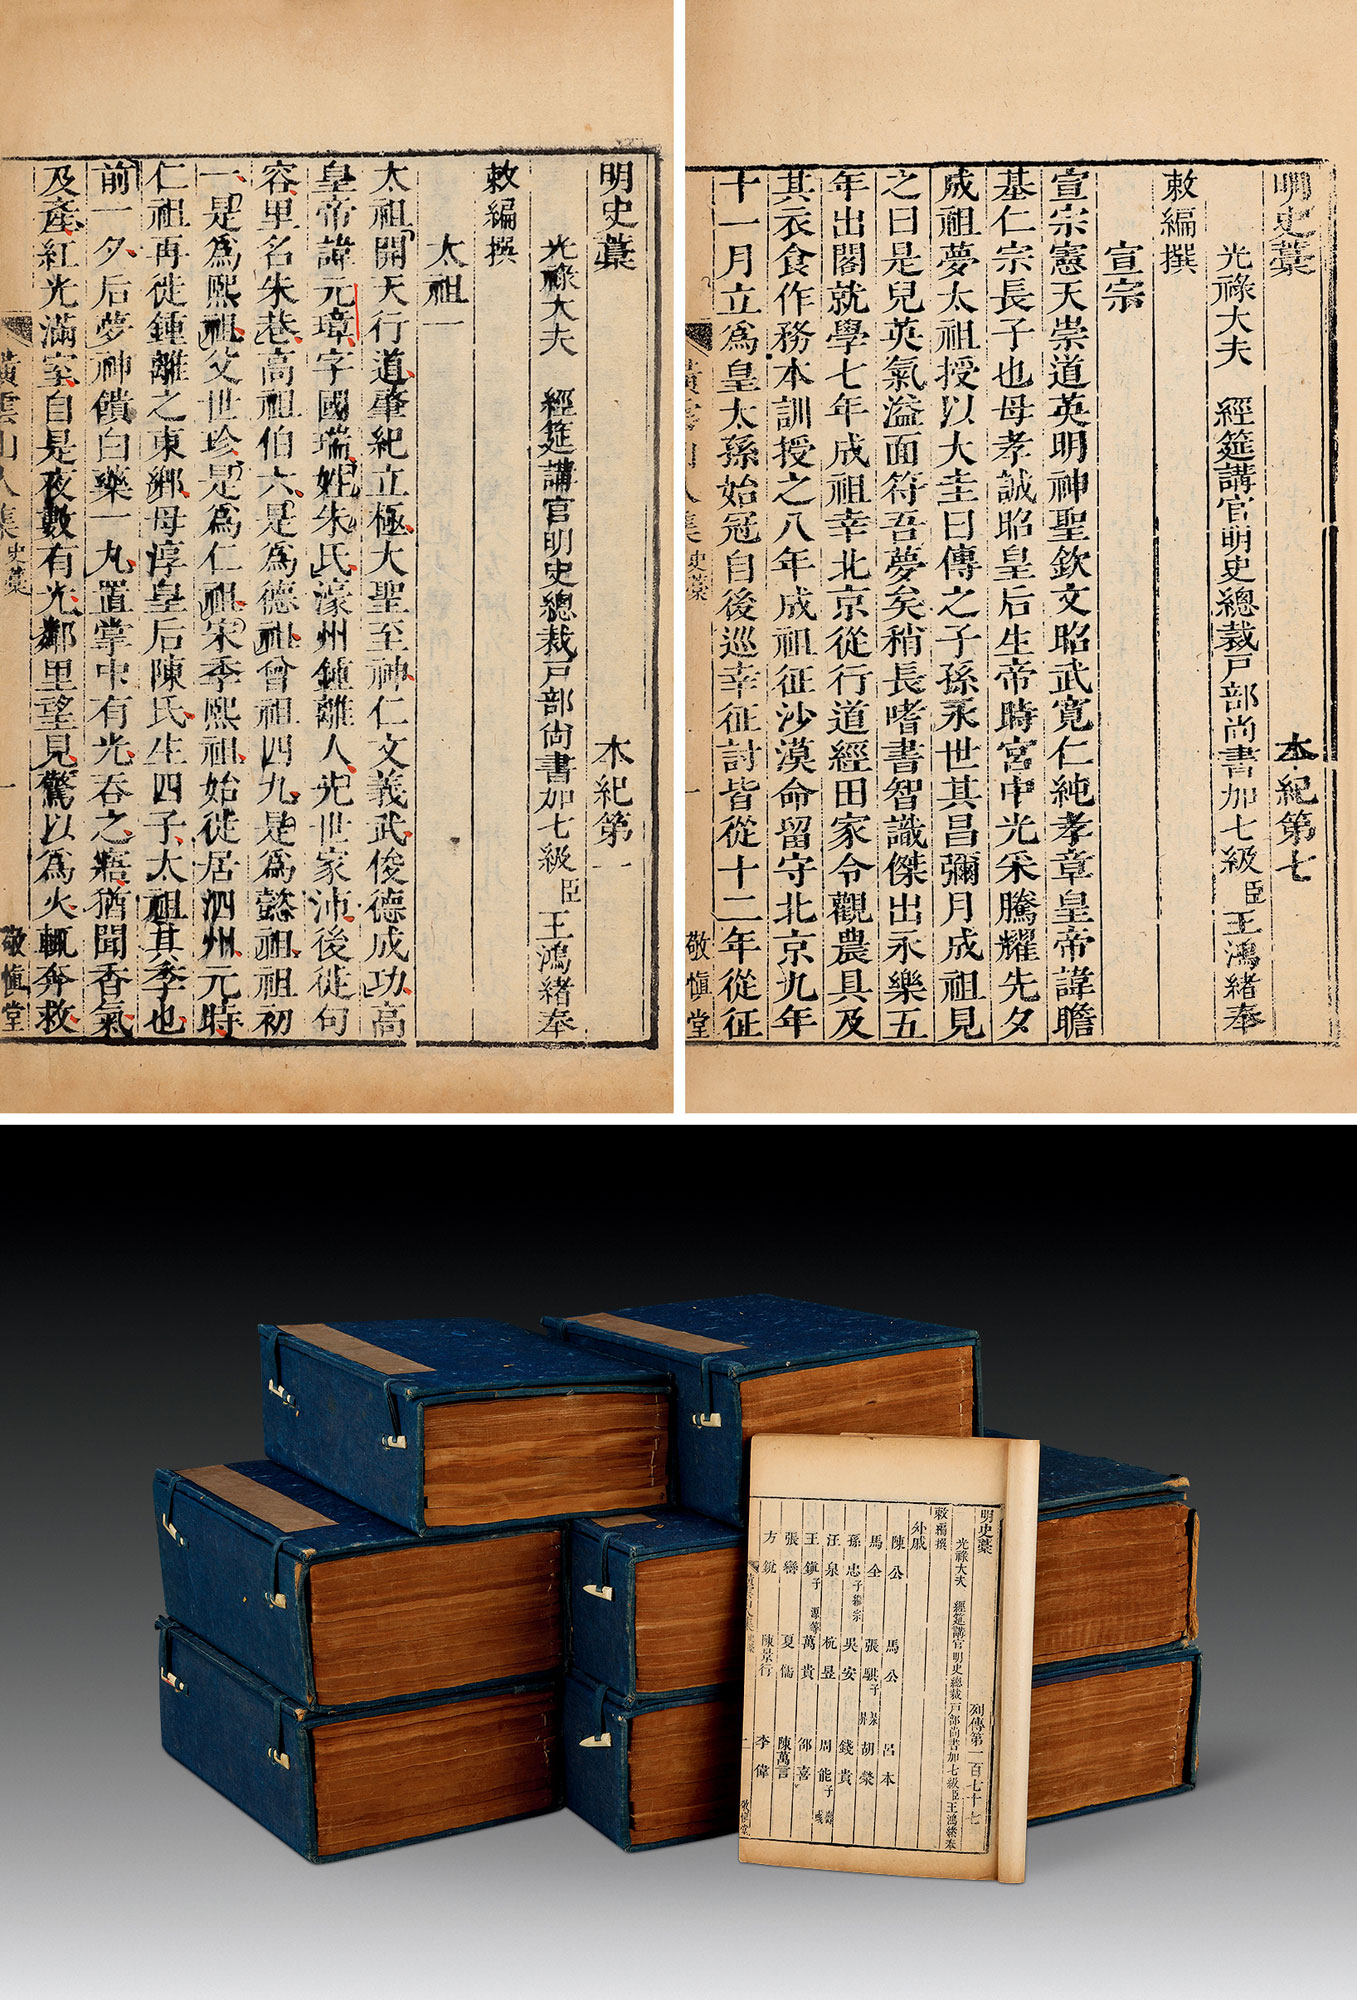 明史藁
本紀第一
光祿大夫 經筵講官明史總裁戶部尚書加七級臣王鴻緒奉
敕編撰
太祖一
太祖開天行道肇紀立極大聖至神仁文義武俊德成功高
皇帝諱元璋字國瑞姓朱氏濠州鍾離人先世家沛後徙句
容里名朱巷高祖伯六是爲德祖曾祖四九是爲懿祖祖初
一是爲熙祖父世珍是爲仁祖宋季熙祖始徙居泗州元時
仁祖再徙鍾離之東鄉母淳皇后陳氏生四子太祖其季也
前一夕后夢神饋白藥一丸置掌中有光吞之寤猶聞香氣
及產紅光滿室自是夜數有光鄰里望見驚以爲火輒奔救
橫雲山人集 史藁
一
敬愼堂
明史藁
本紀第七
光祿大夫 經筵講官明史總裁戶部尚書加七級臣王鴻緒奉
敕編撰
宣宗
宣宗憲天崇道英明神聖欽文昭武寬仁純孝章皇帝諱瞻
基仁宗長子也母孝誠昭皇后生帝時宮中光采騰耀先夕
成祖夢太祖授以大圭曰傳之子孫永世其昌彌月成祖見
之曰是兒英氣溢面符吾夢矣稍長嗜書智識傑出永樂五
年出閣就學七年成祖幸北京從行道經田家令觀農具及
其衣食作務本訓授之八年成祖征沙漠命留守北京九年
十一月立爲皇太孫始冠自後巡幸征討皆從十二年從征
橫雲山人集 史藁
一
敬愼堂
明史藁
列傳第一百七十七
光祿大夫 經筵講官明史總裁戶部尚書加七級臣王鴻緒奉
敕編撰
外戚
陳公 馬公 呂本
馬全 張騏 子 胡榮
孫忠 子繼宗 吳安 錢貴
汪泉 杭昱 周能 子
王鎮 子源等 萬貴 邵喜
張巒 夏儒 陳萬言
方銳 陳景行 李偉
橫雲山人集 史藁
一
敬愼堂